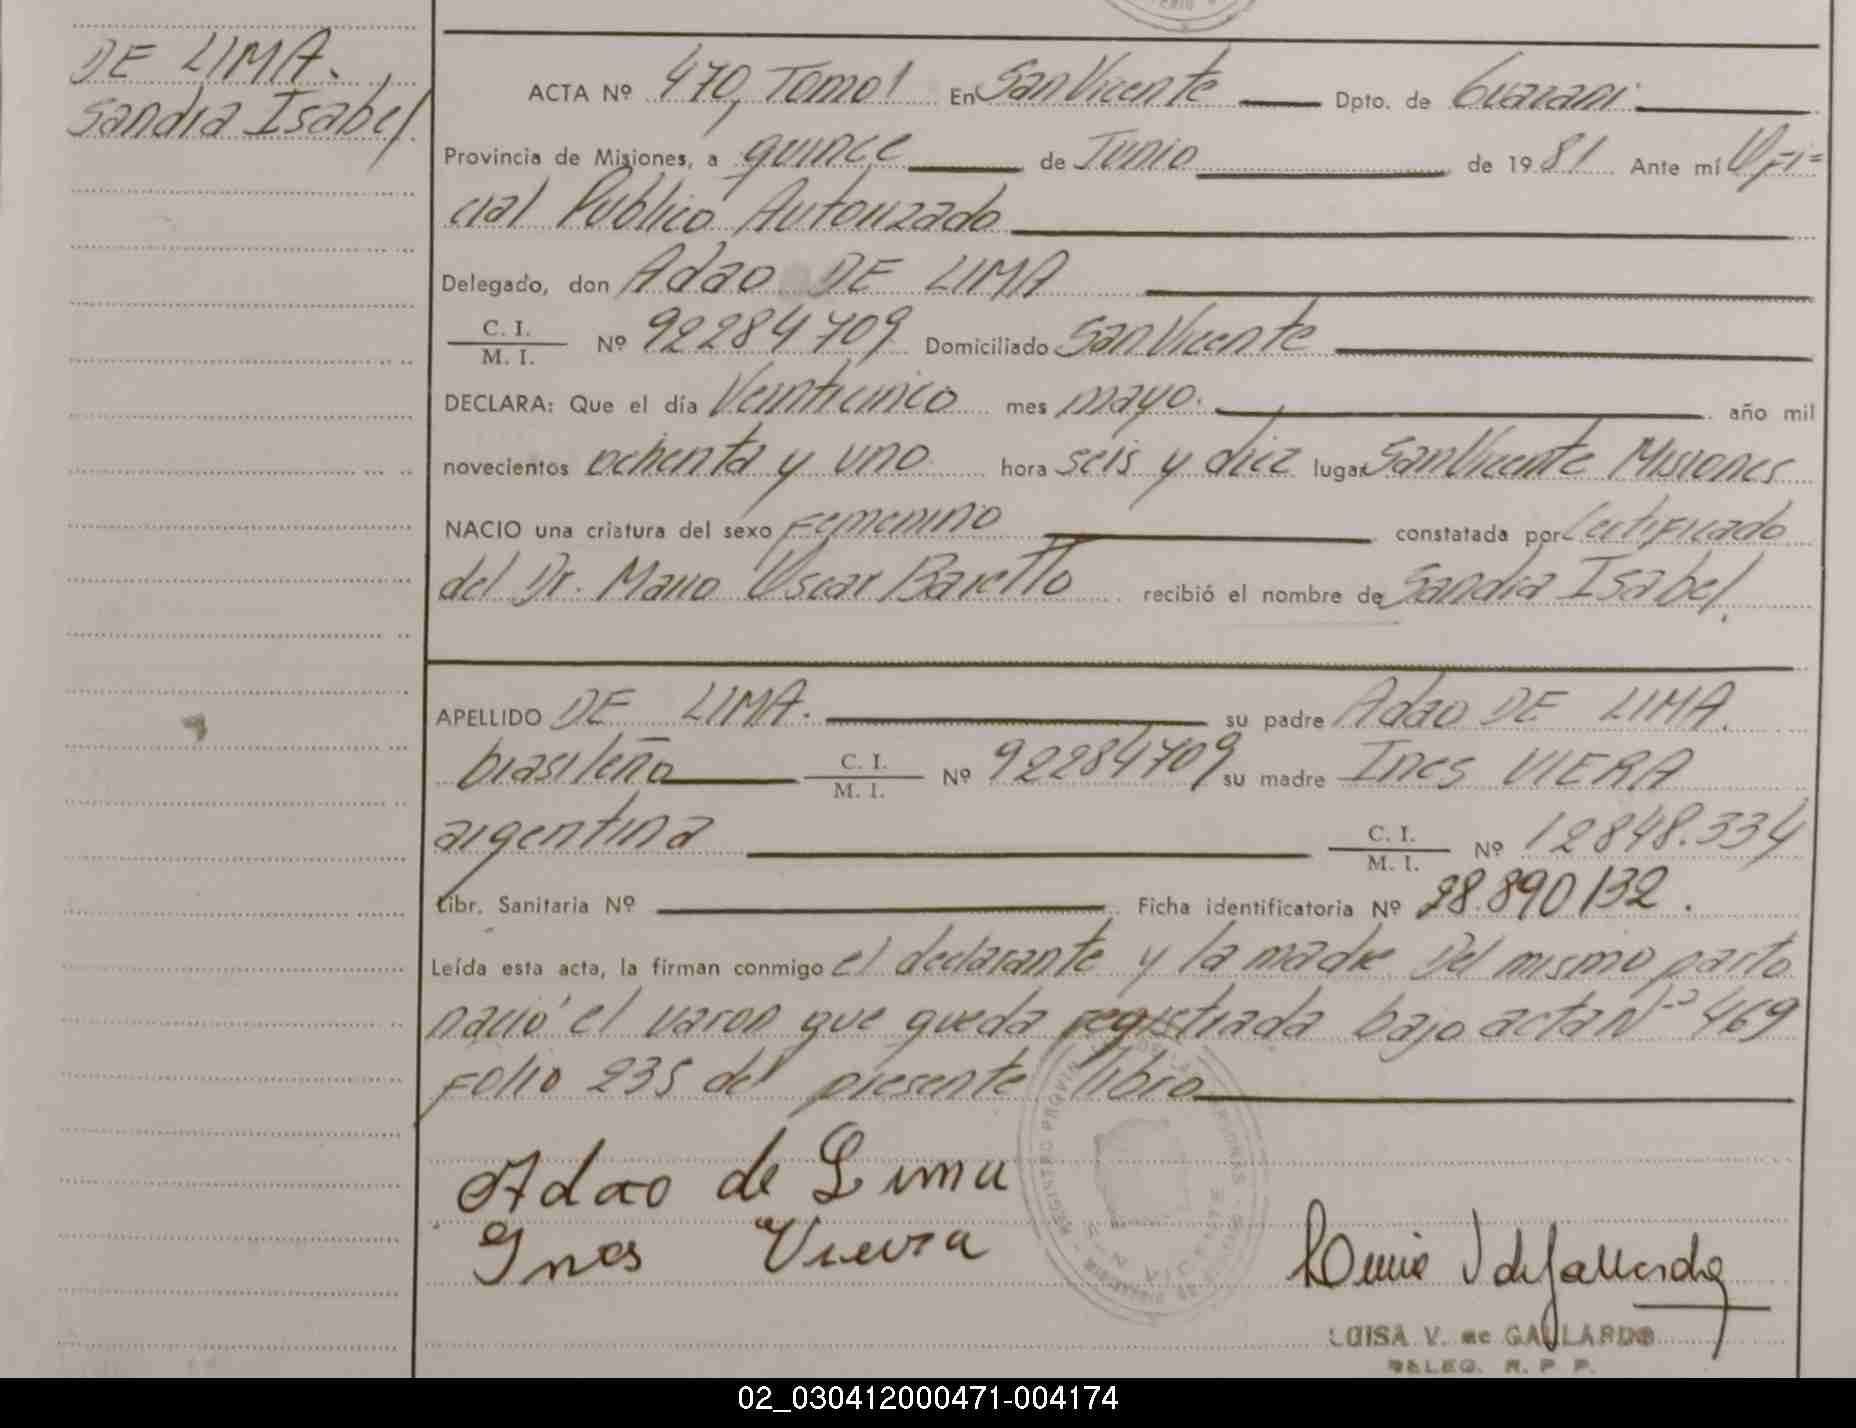 DE LIMA.
Sandra Isabel
ACTA Nº 470, Tomo I En San Vicente Dpto. de Guarani
Provincia de Misiones, a quince de Junio de 1981 Ante mí Ofi=
cial Publico Autorizado
Delegado, don Adao DE LIMA
C. I.
M. I. Nº 92284709 Domiciliado San Vicente
DECLARA: Que el día Veinticinco mes mayo. año mil
novecientos ochenta y uno hora seis y diez lugar San Vicente Misiones
NACIO una criatura del sexo Femenino constatada por Certificado
del Dr. Mario Oscar Baretto recibió el nombre de Sandra Isabel.
APELLIDO DE LIMA. su padre Adao DE LIMA.
brasileño C. I.
M. I. Nº 92284709 su madre Ines VIERA
argentina C. I.
M. I. Nº 12848.334
Libr. Sanitaria Nº Ficha identificatoria Nº 28.890132.
Leída esta acta, la firman conmigo el declarante y la madre Del mismo parto
nació el varon que queda registrada bajo acta Nº 469
Folio 235 del presente libro
Adao de Lima
Ines Vieira
LUISA V. de GALLARDO
DELEG. R. P. P.
02_030412000471-004174